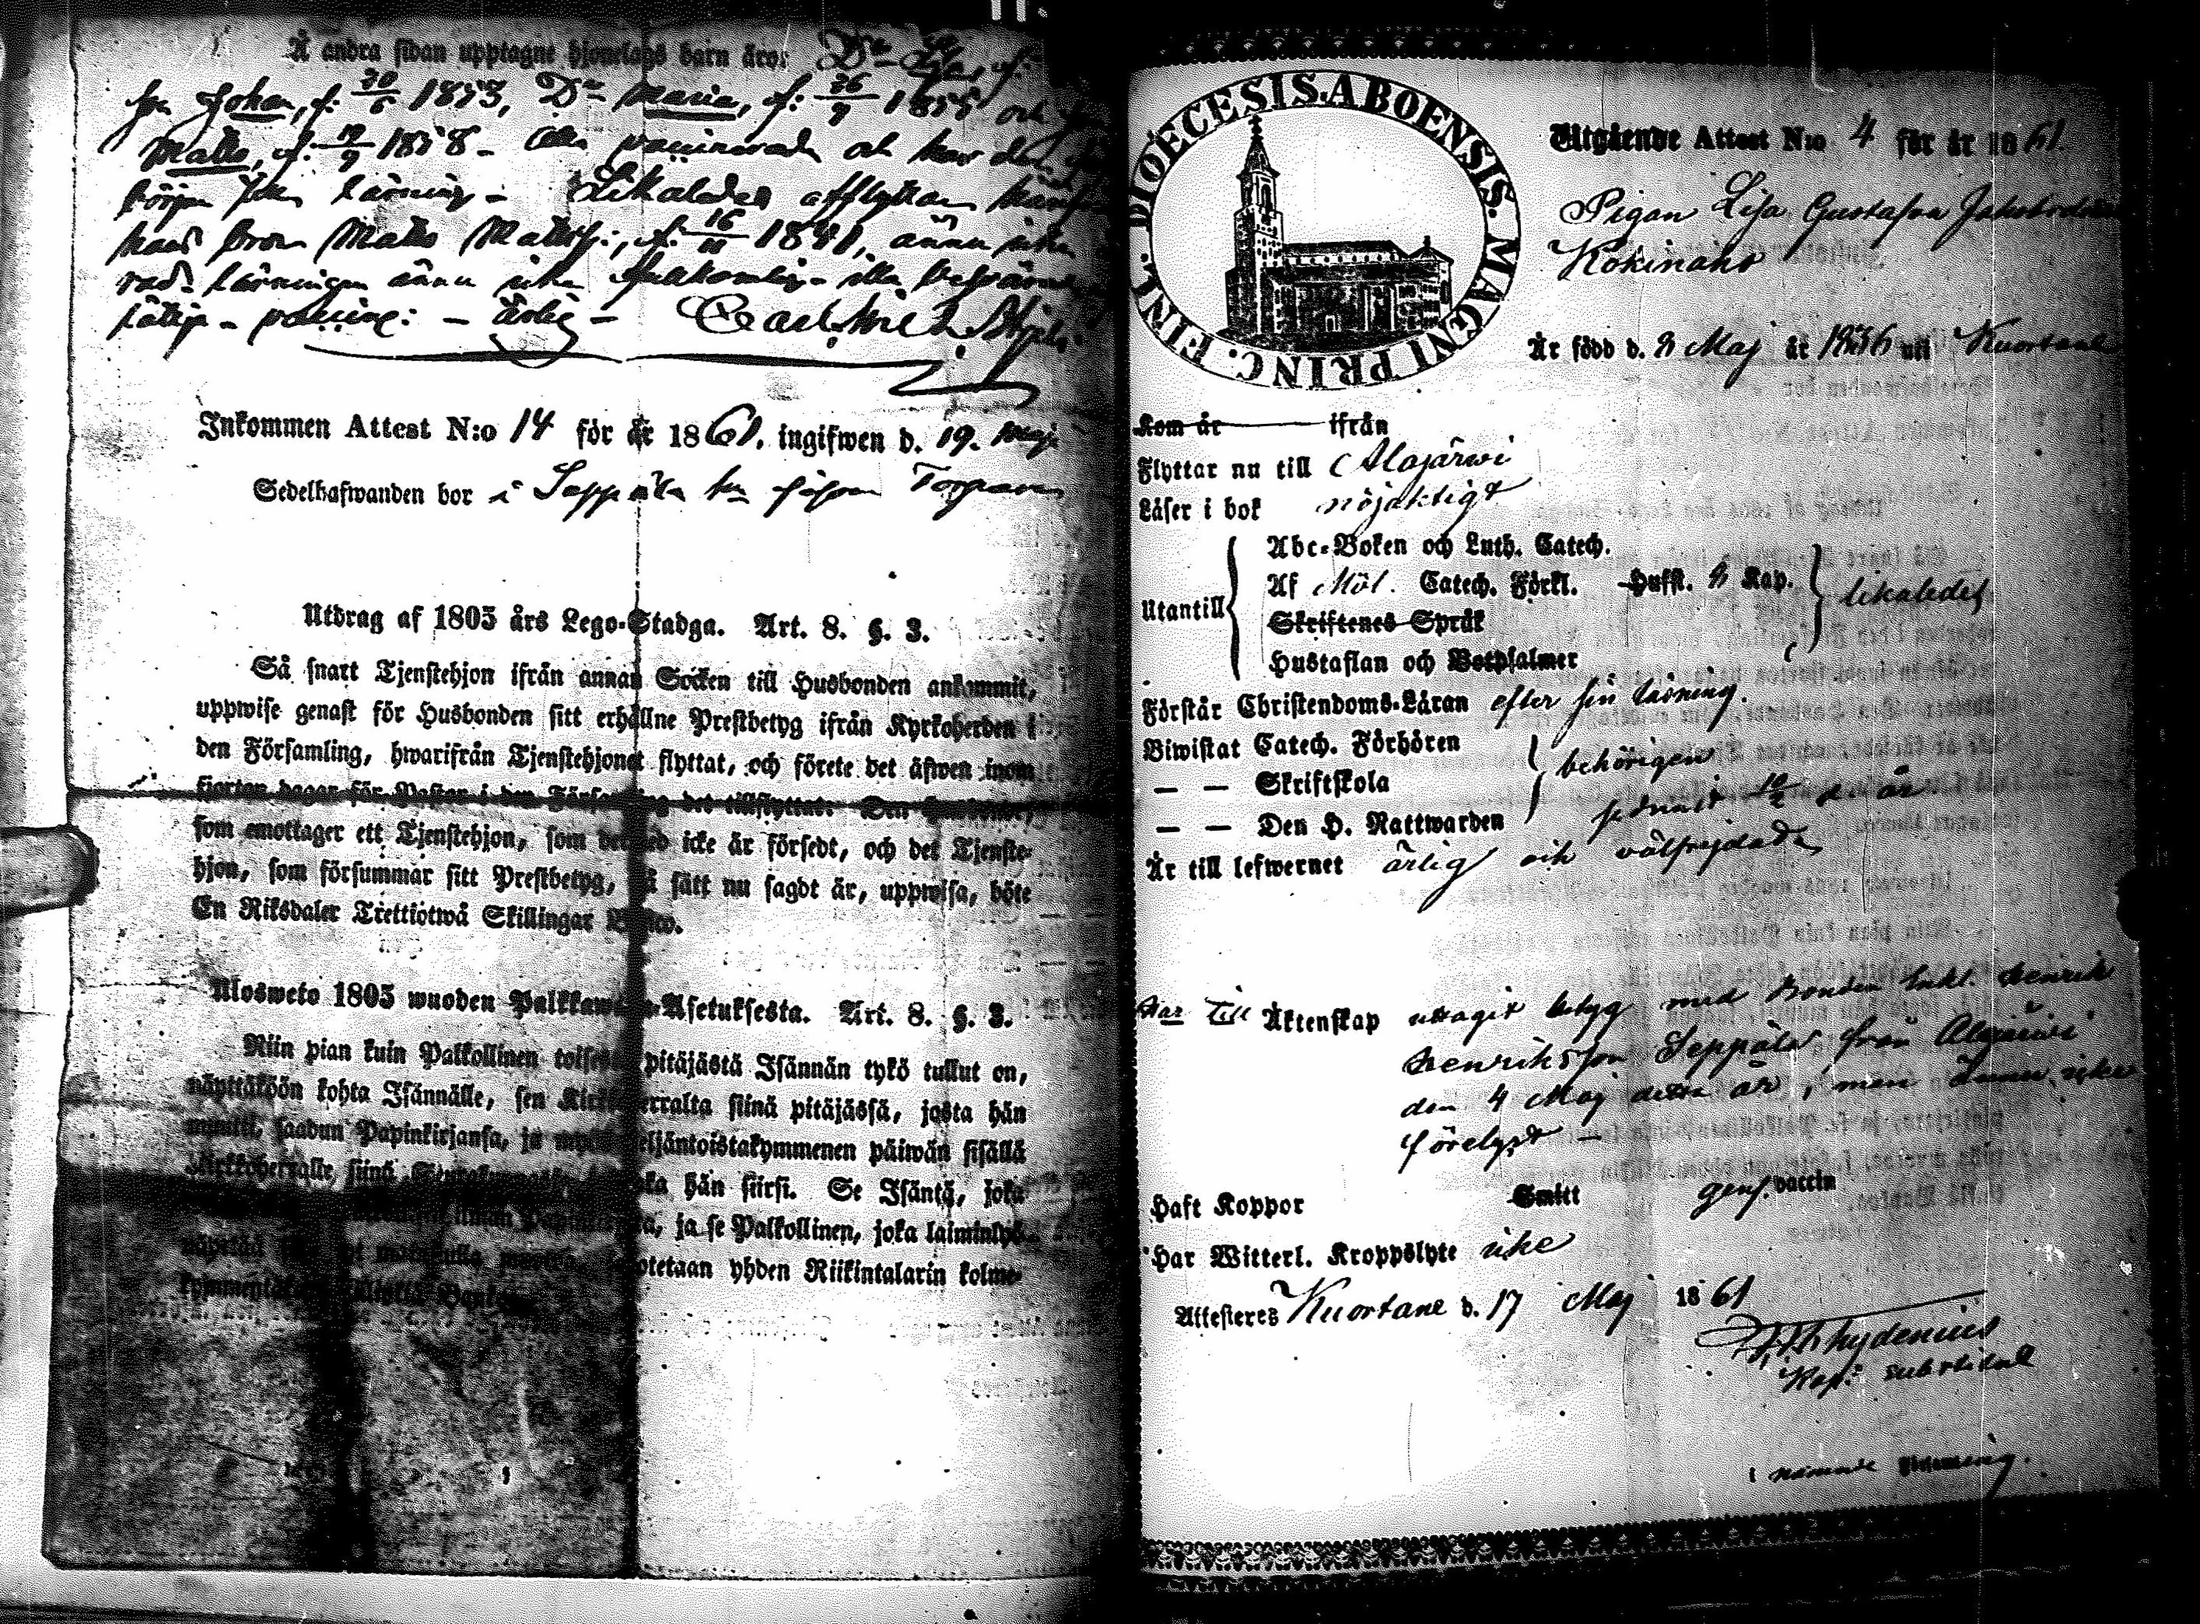 Å andra sidan upptagne hjonelags barn äro: Dr
son Johan, f: 20/6 1853, Dr Maria, f: 26/9 1855 och
Matts, f: 19/9 1858 - alla vaccinerade och har den
börjat sin läsning - Likaledes afflyttar
hans bror Matts Matts: f: 16/11 1841, ännu icke
läsningen ännu icke fullkomlig - illa
vaccine: - Ärlig -
Inkommen Attest N:o 14 för år 1861. ingifwen d. 19. Maji
Sedelhafwanden bor i Seppälä
Utdrag af 1805 års Lego-Stadga. Art. 8. §. 3.
Så snart Tjenstehjon ifrån annan Socken till Husbonden ankommit,
uppwise genast för Husbonden sitt erhållne Prestbetyg ifrån Kyrkoherden i
den Församling, hwarifrån Tjenstehjonet flyttat, och förete det äfwen inom
fjorton dagar för Pastor i den Församling det tillflyttat. Den Husbonde,
som emottager ett Tjenstehjon, som dermed icke är försedt, och det Tjenste-
hjon, som försummar sitt Prestbetyg, på sätt nu sagdt är, uppwisa, böte
En Riksdaler Trettiotwå Skillingar Banco.
Ulosweto 1805 wuoden Palkkawäen-Asetuksesta. Art. 8. §. 3.
Niin pian kuin Palkollinen toisesta pitäjästä Isännän tykö tullut on,
näyttäköön kohta Isännälle, sen Kirkkoherralta siinä pitäjässä, josta hän
muutti, saadun Papinkirjansa, ja myös neljäntoistakymmenen päiwän sisällä
Kirkkoherralle siinä Seurakunnassa, johonka hän siirsi. Se Isäntä, joka
ilman Papinkirjata, ja se Palkollinen, joka laiminlyö
näyttää sakotetaan yhden Riikintalarin kolme-
kymmentäkaksi killinkiä Bankossa.
DIOECESIS. ABOENSIS. MAGNI PRINC. FINL.
Utgående Attest N:o 4 för år 1861.
Pigan Lisa Gustafva Jakobsdotter
Kokinaho
Är född d. 8 Maj år 1836 uti Kuortane
Kom år ifrån
Flyttar nu till Alajärwi
Läser i bok nöjaktigt
Utantill
Abc-Boken och Luth. Catech.
Af Möl. Catech. Förkl. Hufst. 8 Kap.
likaledes
Skriftenes Språk
Hustaflan och Botpsalmer
Förstår Christendoms-Läran efter sin läsning.
Biwistat Catech. Förhören
behörigen
— — Skriftskola
— — Den H. Nattwarden sednast 10/2 d. år
Är till lefwernet ärlig och välfrejdade
Har till Äktenskap uttagit betyg med Bonden Enkl. Henrik
Henriksson Seppälä från Alajärwi
den 4 Maj detta år, men ännu icke
förelyst -
Haft Koppor Smitt genf. vaccin
Har Witterl. Kroppslyte icke
Attesteres Kuortane d. 17 Maj 1861
Chydenius
Kap: substitut
i nämnde Församling.